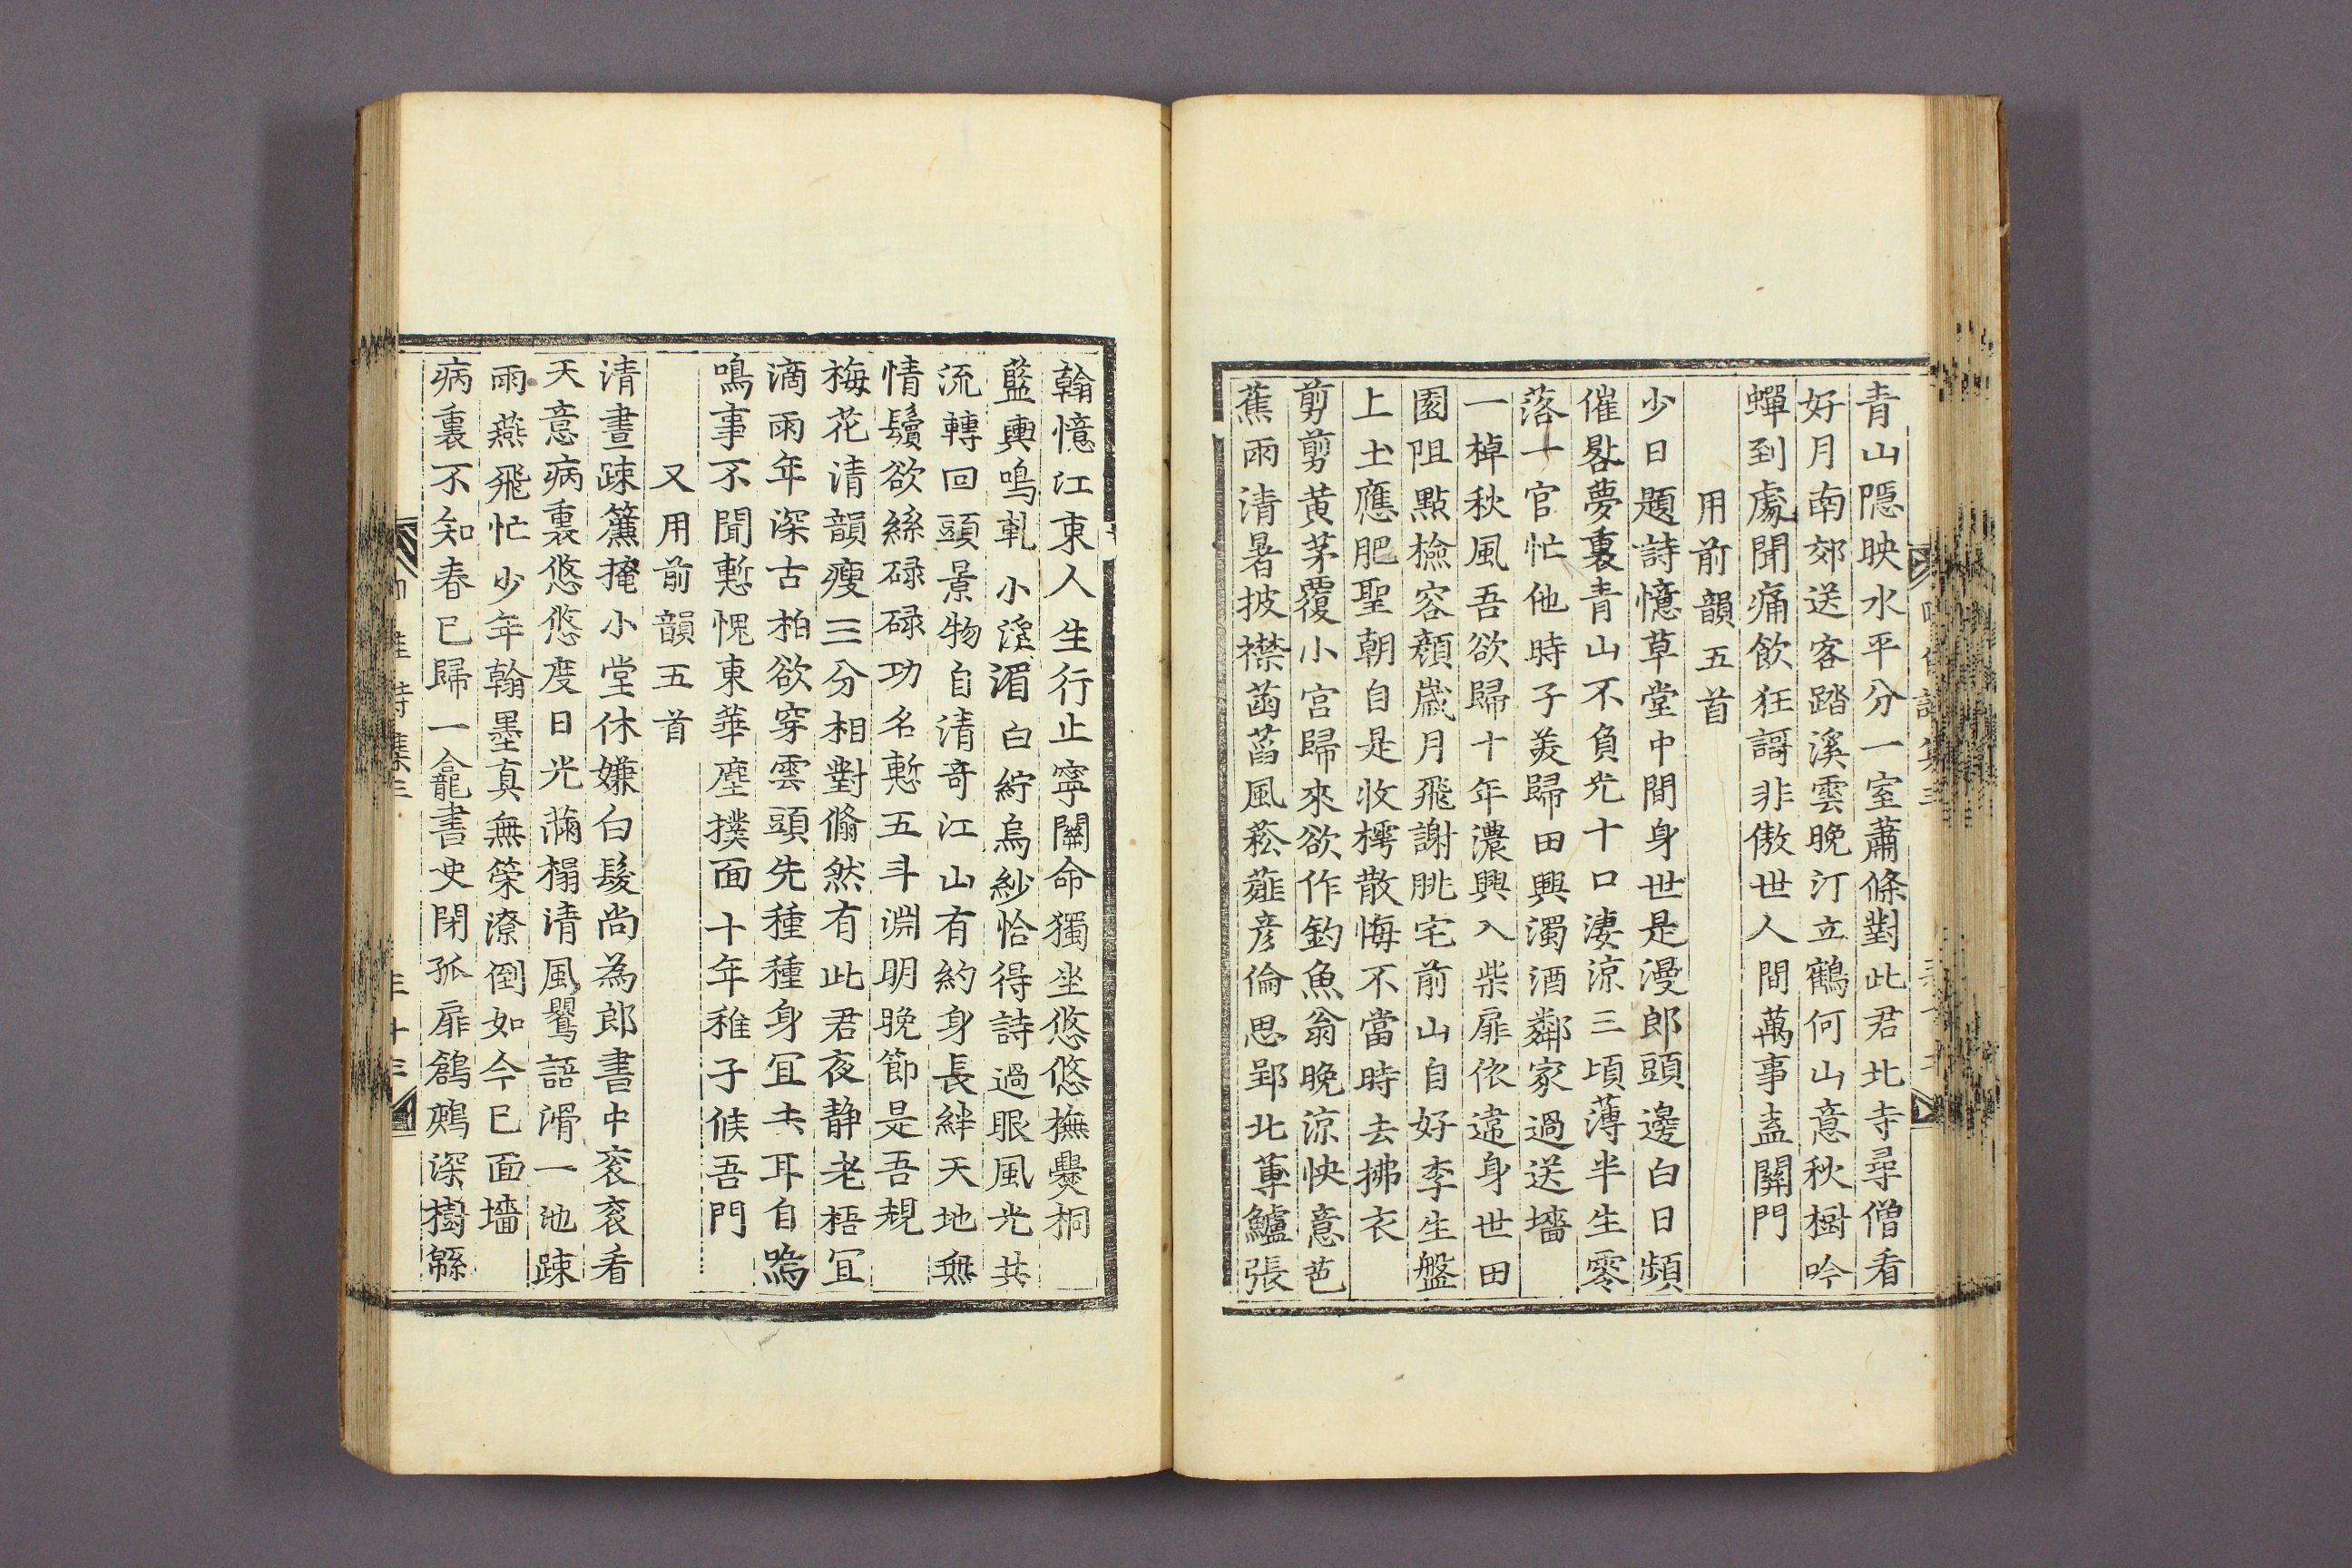 青山隱映水平分一室蕭條對此君北寺尋僧看
好月南郊送客踏溪雲晚汀立鶴何山意秋樹吟
蟬到處聞痛飲狂謌非傲世人間萬事盍關門
用前韻五首
少日題詩憶草堂中間身世是漫郎頭邊白日頻
催晷夢裏青山不負光十口淒涼三頃薄半生零
落一官忙他時子羙歸田興濁酒鄰家過送墻
一棹秋風吾欲歸十年濃興入柴扉依違身世田
園阻點檢容顏歲月飛謝朓宅前山自好李生盤
上土應肥聖朝自是收樗散悔不當時去拂衣
剪剪黃茅覆小宮歸來欲作釣魚翁晚涼快意芭
蕉雨清暑披襟菡萏風菘薤彥倫思郢北蓴鱸張
翰憶江東人生行止寧關命獨坐悠悠撫爨桐
藍輿鳴軋小溪湄白紵烏紗恰得詩過眼風光共
流轉回頭景物自清奇江山有約身長絆天地無
情鬢欲絲碌碌功名慙五斗淵明晚節是吾規
梅花清韻瘦三分相對翛然有此君夜静老梧冝
滴雨年深古柏欲穿雲頭先種種身冝去耳自嗚
鳴事不聞慙愧東華塵撲面十年稚子候吾門
又用前韻五首
清晝疎簾掩小堂休嫌白髮尚為郎書中衮衮看
天意病裏悠悠度日光滿榻清風鸎語滑一池踈
雨燕飛忙少年翰墨真無策潦倒如今已面墻
病裏不知春已歸一龕書史閉孤扉鷓鴣深樹緜